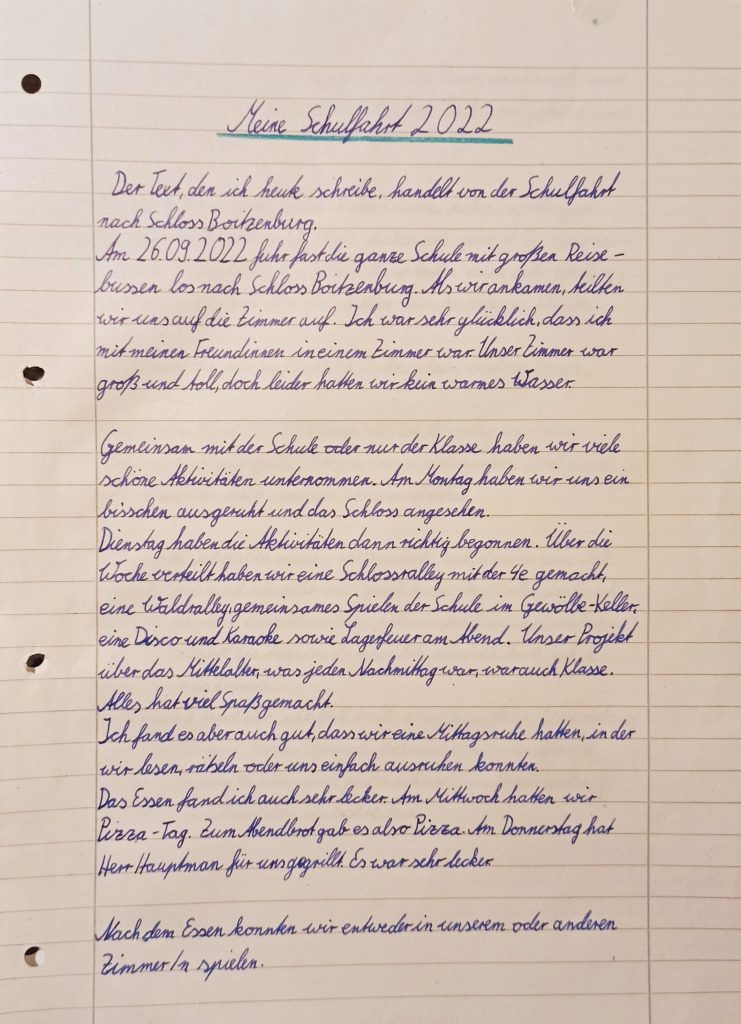 Meine Schulfahrt 2022
Der Text, den ich heute schreibe, handelt von der Schulfahrt
nach Schloss Boitzenburg.
Am 26.09.2022 fuhr fast die ganze Schule mit großen Reise-
bussen los nach Schloss Boitzenburg. Als wir ankamen, teilten
wir uns auf die Zimmer auf. Ich war sehr glücklich, dass ich
mit meinen Freundinnen in einem Zimmer war. Unser Zimmer war
groß und toll, doch leider hatten wir kein warmes Wasser.
Gemeinsam mit der Schule oder nur der Klasse haben wir viele
schöne Aktivitäten unternommen. Am Montag haben wir uns ein
bisschen ausgeruht und das Schloss angesehen.
Dienstag haben die Aktivitäten dann richtig begonnen. Über die
Woche verteilt haben wir eine Schlossralley mit der 4e gemacht,
eine Waldralley, gemeinsames Spielen der Schule im Gewölbe-Keller,
eine Disco und Karaoke sowie Lagerfeuer am Abend. Unser Projekt
über das Mittelalter, was jeden Nachmittag war, war auch Klasse.
Alles hat viel Spaß gemacht.
Ich fand es aber auch gut, dass wir eine Mittagsruhe hatten, in der
wir lesen, rätseln oder uns einfach ausruhen konnten.
Das Essen fand ich auch sehr lecker. Am Mittwoch hatten wir
Pizza-Tag. Zum Abendbrot gab es also Pizza. Am Donnerstag hat
Herr Hauptman für uns gegrillt. Es war sehr lecker.
Nach dem Essen konnten wir entweder in unserem oder anderen
Zimmer/n spielen.